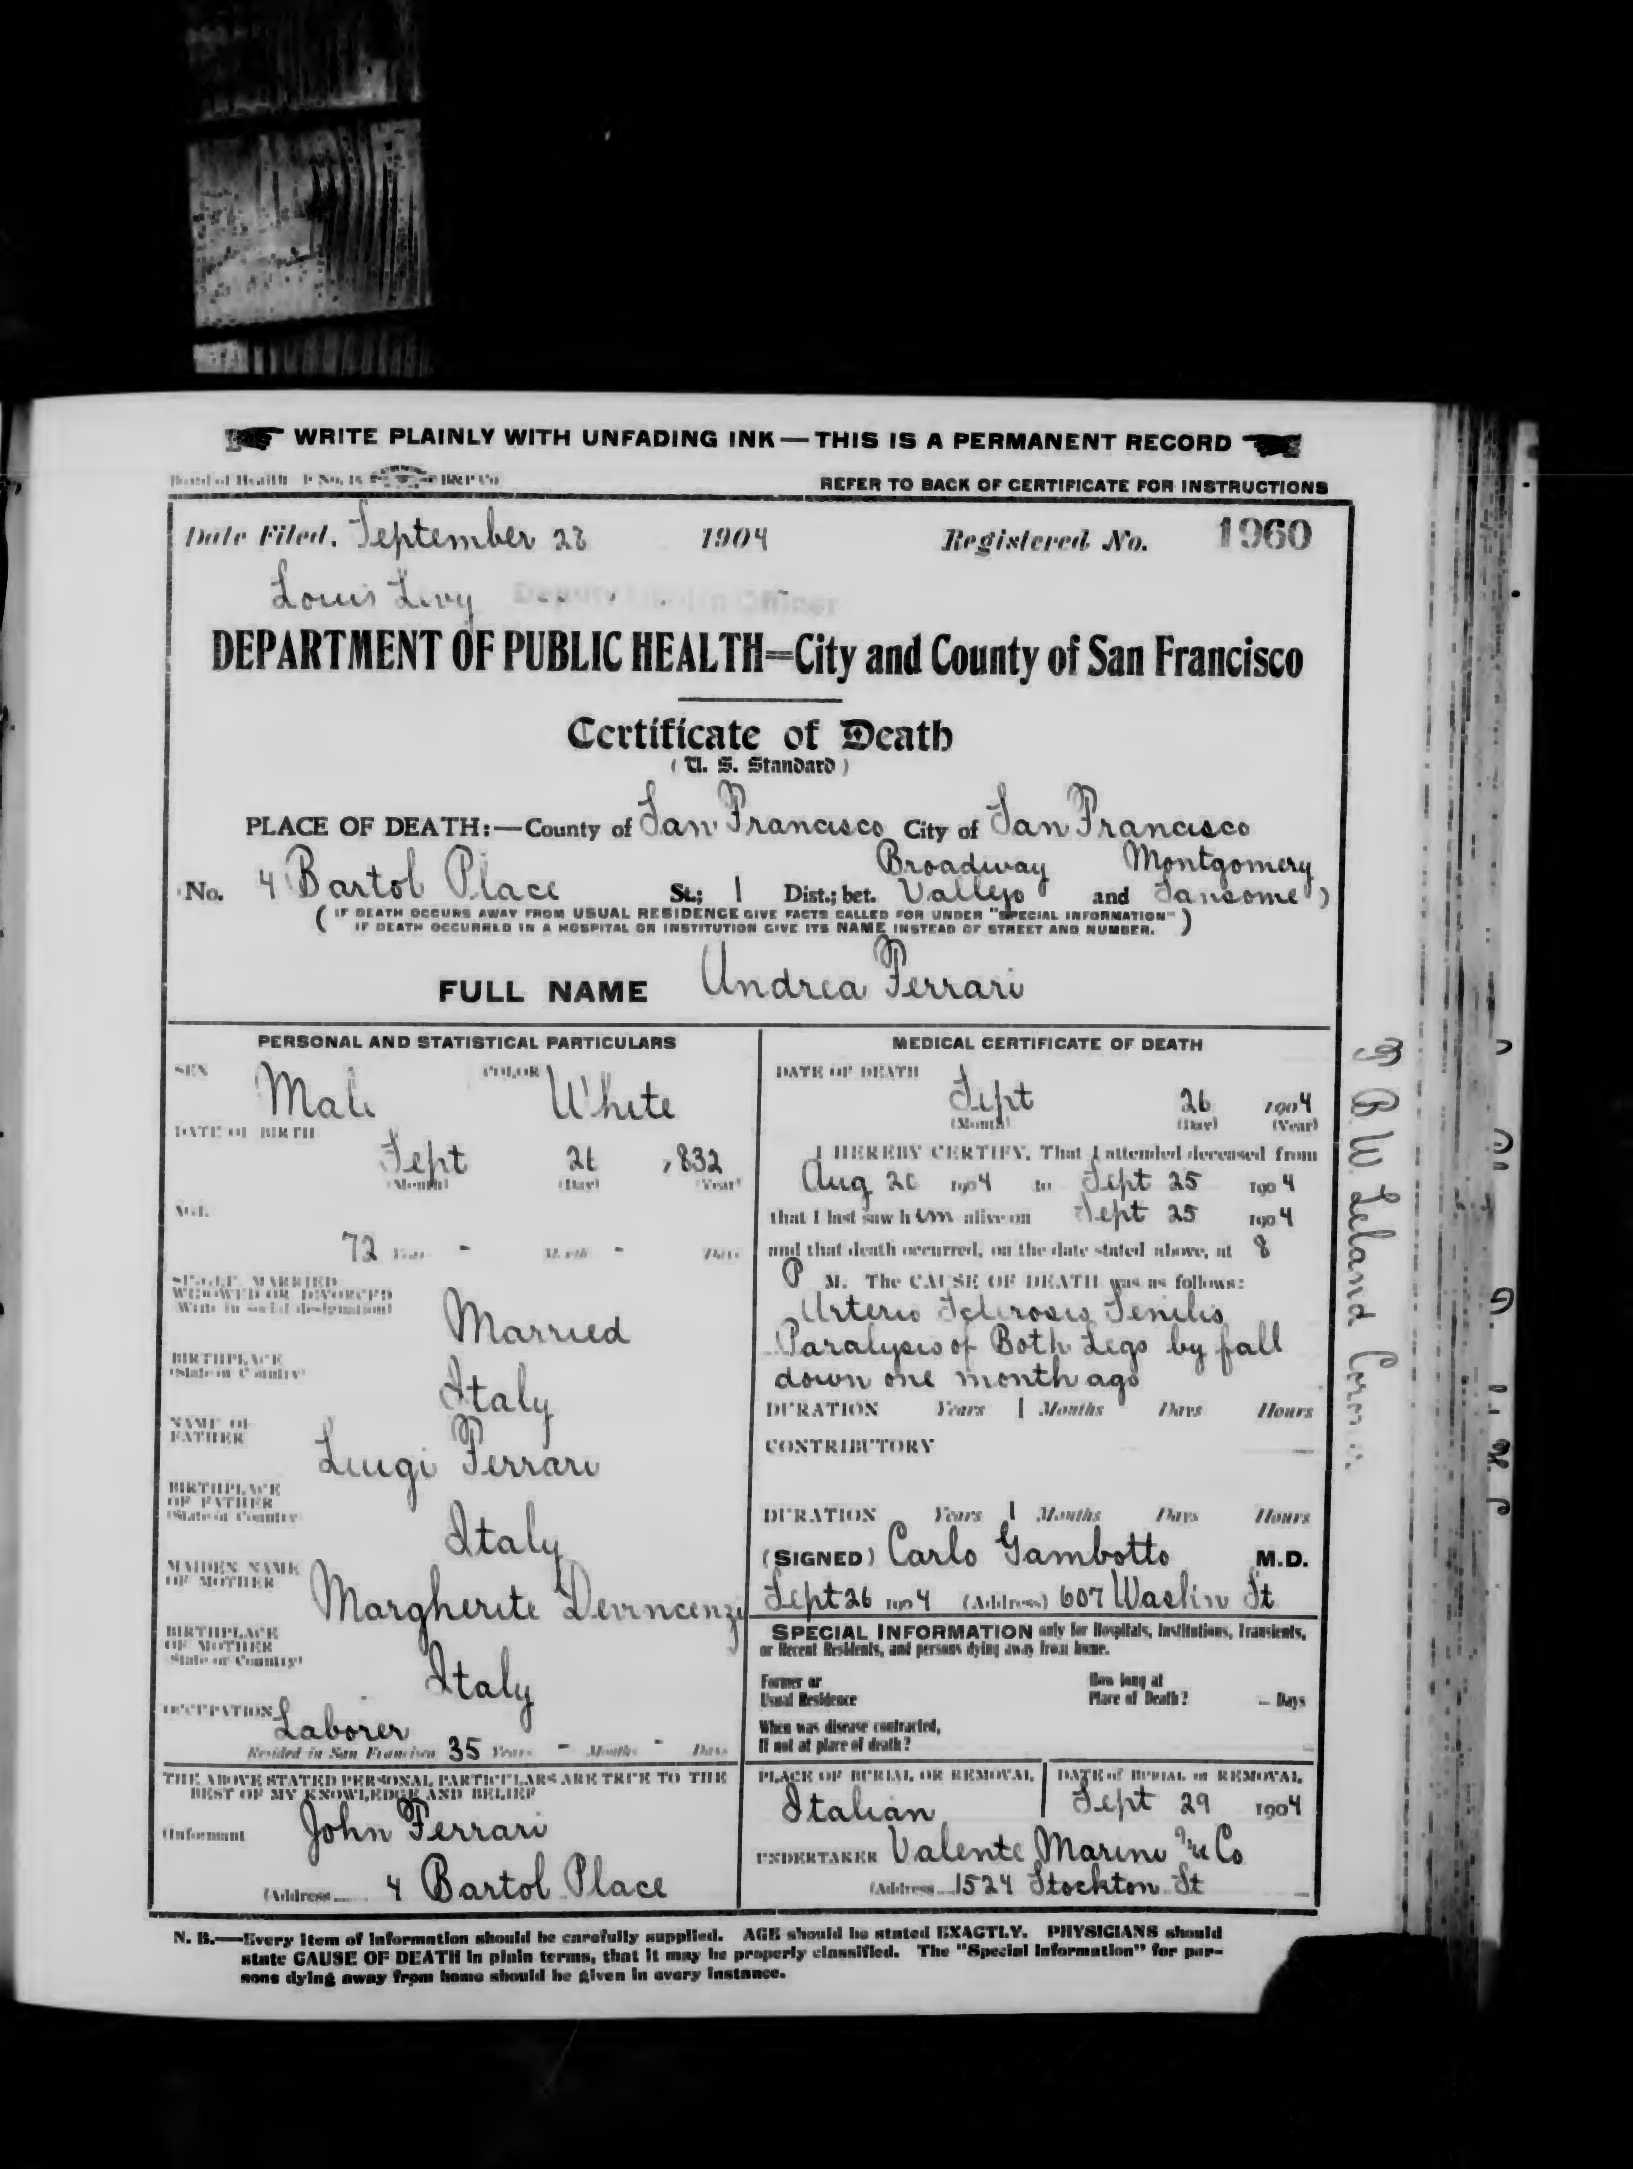 WRITE PLAINLY WITH UNFADING INK — THIS IS A PERMANENT RECORD
Board of Health B&P Co
REFER TO BACK OF CERTIFICATE FOR INSTRUCTIONS
Date Filed, September 28 1904 Registered No. 1960
Louis Levy Deputy Health Officer
DEPARTMENT OF PUBLIC HEALTH=City and County of San Francisco
Certificate of Death
( U. S. Standard )
PLACE OF DEATH:—County of San Francisco City of San Francisco
Broadway Montgomery
No. 4 Bartol Place St.; 1 Dist.; bet. Vallejo and Sansome )
( IF DEATH OCCURS AWAY FROM USUAL RESIDENCE GIVE FACTS CALLED FOR UNDER "SPECIAL INFORMATION" )
IF DEATH OCCURRED IN A HOSPITAL OR INSTITUTION GIVE ITS NAME INSTEAD OF STREET AND NUMBER.
FULL NAME Andrea Ferrari
PERSONAL AND STATISTICAL PARTICULARS
SEX Male COLOR White
DATE OF BIRTH
Sept 26 1832
(Month) (Day) (Year)
AGE
72 Years - Months - Days
SINGLE, MARRIED
WIDOWED OR DIVORCED
(Write in social designation)
Married
BIRTHPLACE
(State or Country)
Italy
NAME OF
FATHER
Luigi Ferrari
BIRTHPLACE
OF FATHER
(State or Country)
Italy
MAIDEN NAME
OF MOTHER
Margherite Devincenzi
BIRTHPLACE
OF MOTHER
(State or Country)
Italy
OCCUPATION Laborer
Resided in San Francisco 35 Years - Months - Days
THE ABOVE STATED PERSONAL PARTICULARS ARE TRUE TO THE
BEST OF MY KNOWLEDGE AND BELIEF
(Informant John Ferrari
(Address 4 Bartol Place
MEDICAL CERTIFICATE OF DEATH
DATE OF DEATH
Sept 26 1904
(Month) (Day) (Year)
I HEREBY CERTIFY, That I attended deceased from
Aug 20 1904 to Sept 25 1904
that I last saw him alive on Sept 25 1904
and that death occurred, on the date stated above, at 8
P M. The CAUSE OF DEATH was as follows:
Arterio Sclerosis Senilis
Paralysis of Both Legs by fall
down one month ago
DURATION Years 1 Months Days Hours
CONTRIBUTORY
DURATION Years 1 Months Days Hours
(SIGNED) Carlo Gambotto M.D.
Sept 26 1904 (Address) 607 Washn St
SPECIAL INFORMATION only for Hospitals, Institutions, Transients,
or Recent Residents, and persons dying away from home.
Former or
Usual Residence
How long at
Place of Death? Days
When was disease contracted,
If not at place of death?
PLACE OF BURIAL OR REMOVAL
Italian
DATE of BURIAL or REMOVAL
Sept 29 1904
UNDERTAKER Valente Marini & Co
(Address 1524 Stockton St
N. B.—Every item of information should be carefully supplied. AGE should be stated EXACTLY. PHYSICIANS should
state CAUSE OF DEATH in plain terms, that it may be properly classified. The "Special Information" for per-
sons dying away from home should be given in every instance.
W. Leland